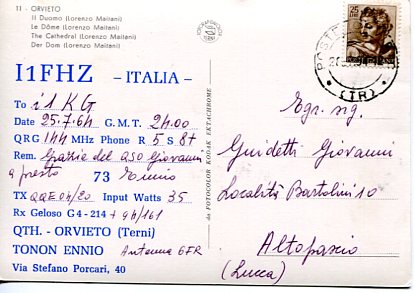 11 - ORVIETO
Il Duomo (Lorenzo Maitani)
Le Dôme (Lorenzo Maitani)
The Cathedral (Lorenzo Maitani)
Der Dom (Lorenzo Maitani)
I1FHZ - ITALIA -
To i1KG
Date 25.7.64 G.M.T. 24.00
QRG 144 MHz Phone R 5 S 8t
Rem. Grazie del QSO Giovanni
a presto 73 Ennio
TX QQE 04/20 Input Watts 35
Rx Geloso G4 - 214 + 9h/161
QTH. - ORVIETO (Terni)
TONON ENNIO Antenna 6FR
Via Stefano Porcari, 40
da FOTOCOLOR KODAK EKTACHROME
25
POSTE
(TR)
Egr. sig.
Guidetti Giovanni
Località Bartolini 10
Altopascio
(Lucca)